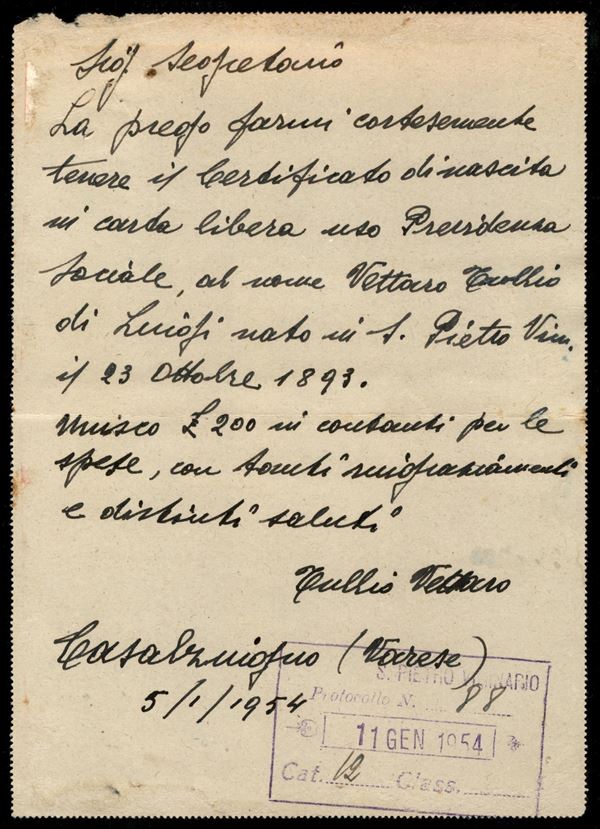 Sig. Segretario
La prego farmi cortesemente
tenere il Certificato di nascita
in carta libera uso Previdenza
Sociale, al nome Vettaro Tullio
di Luigi nato in S. Pietro Vim.
il 23 Ottobre 1893.
Unisco £ 200 in contanti per le
spese, con tanti ringraziamenti
e distinti saluti
Tullio Vettaro
Casalzuigno (Varese)
5/1/1954
S. PIETRO VIMINARIO
Protocollo N. 88
11 GEN 1954
Cat. 12 Class.